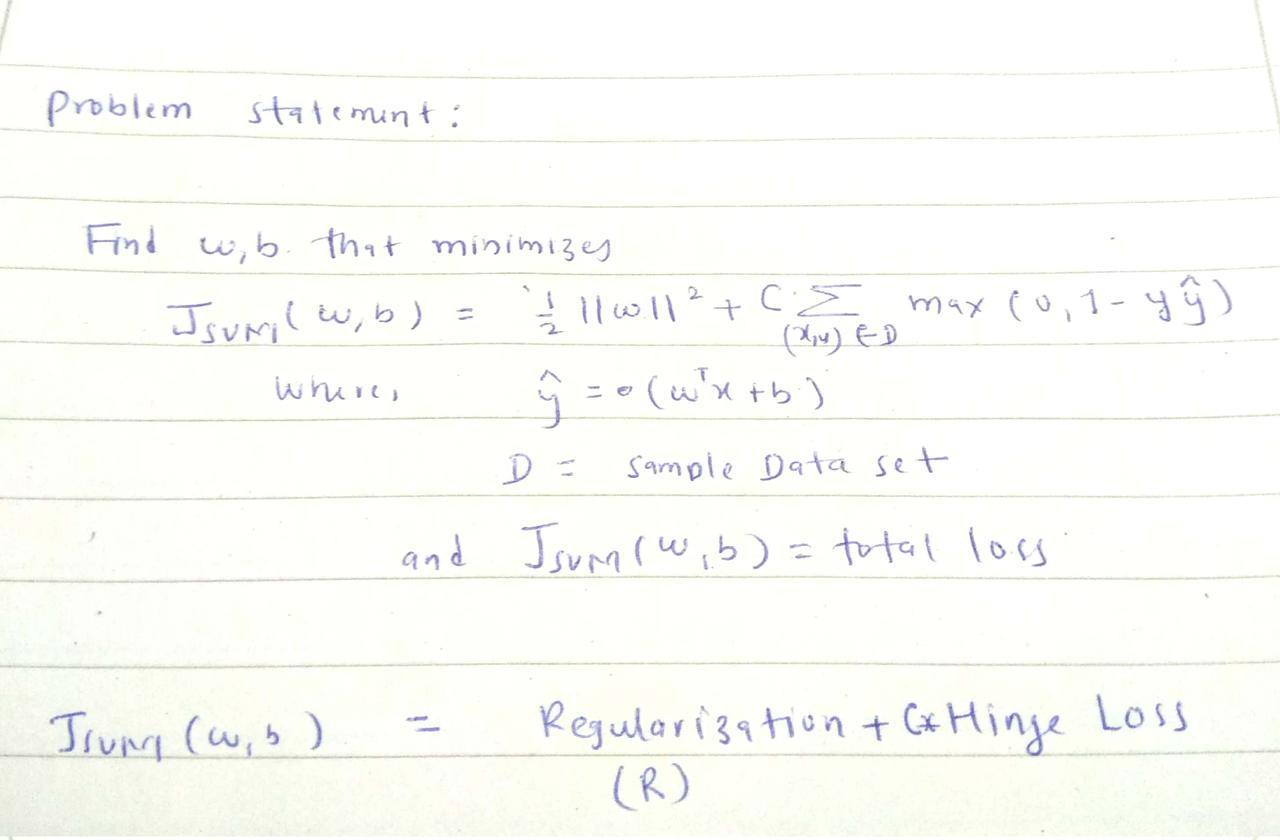 Problem statement:
Find w, b. that minimizes
J_SVM(w, b) = 1/2 ||w||² + C · Σ_(x,y) ∈ D max (0, 1 - y ŷ)
where, ŷ = σ(wᵀx + b)
D = Sample Data set
and J_SVM(w, b) = total loss
J_SVM (w, b) = Regularization + C* Hinge Loss
(R)